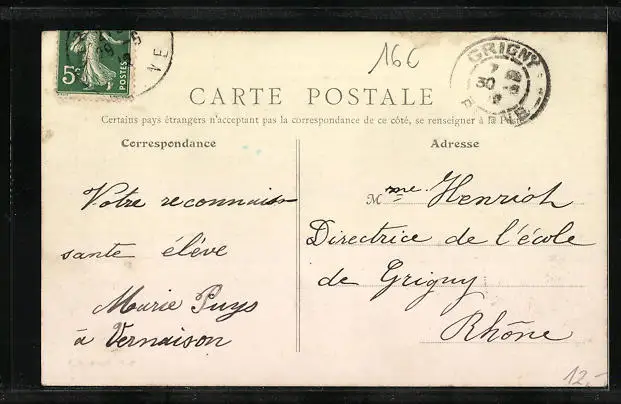 5c
POSTES
16C
GRIGNY
30
CARTE POSTALE
Certains pays étrangers n'acceptant pas la correspondance de ce côté, se renseigner à la Poste
Correspondance
Adresse
Votre reconnais-
sante élève
Marie Puys
à Vernaison
Mme Henrioh
Directrice de l'école
de Grigny
Rhône
12,-